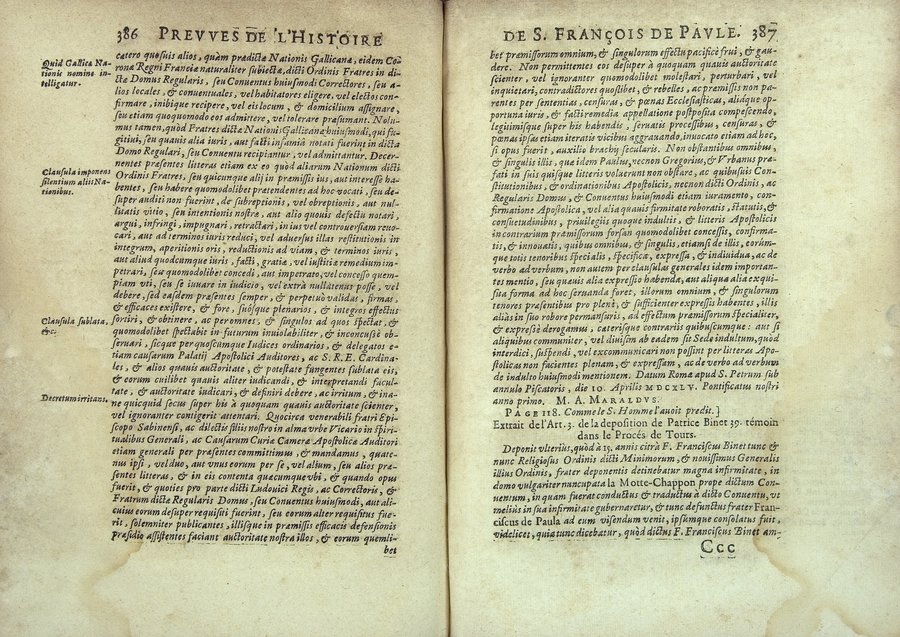 386 PREVVES DE L'HISTOIRE
Quid Gallica Na-
tionis nomine in-
telligatur.
Clausula imponens
silentium aliis Na-
tionibus.
Clausula sublata,
&c.
Decretum irritans.
cætero quosuis alios, quàm prædictæ Nationis Gallicanæ, eidem Co-
ronæ Regni Franciæ naturaliter subiectæ, dicti Ordinis Fratres in di-
ctæ Domus Regularis, seu Conuentus huiusmodi Correctores, seu a-
lios locales, & conuentuales, vel habitatores eligere, vel electos con-
firmare, inibique recipere, vel eis locum, & domicilium assignare,
seu etiam quoquomodo eos admittere, vel tolerare præsumant. Nolu-
mus tamen, quòd Fratres dictæ Nationis Gallicanæ huiusmodi, qui fu-
gitiui, seu quauis alia iuris, aut facti infamia notati fuerint in dicta
Domo Regulari, seu Conuentu recipiantur, vel admittantur. Decer-
nentes præsentes litteras etiam ex eo quòd aliarum Nationum dicti
Ordinis Fratres, seu quicumque alij in præmissis ius, aut interesse ha-
bentes, seu habere quomodolibet prætendentes ad hoc vocati, seu de-
super auditi non fuerint, de subreptionis, vel obreptionis, aut nul-
litatis vitio, seu intentionis nostræ, aut alio quouis defectu notari,
argui, infringi, impugnari, retractari, in ius vel controuersiam reuo-
cari, aut ad terminos iuris reduci, vel aduersus illas restitutionis in
integrum, aperitionis oris, reductionis ad viam, & terminos iuris,
aut aliud quodcumque iuris, facti, gratiæ, vel iustitiæ remedium im-
petrari, seu quomodolibet concedi, aut impetrato, vel concesso quem-
piam vti, seu se iuuare in iudicio, vel extra nullatenus posse, vel
debere, sed easdem præsentes semper, & perpetuò validas, firmas,
& efficaces existere, & fore, suosque plenarios, & integros effectus
sortiri, & obtinere, ac per omnes, & singulos ad quos spectat, &
quomodolibet spectabit in futurum inuiolabiliter, & inconcussè ob-
seruari, sicque per quoscumque Iudices ordinarios, & delegatos e-
tiam causarum Palatij Apostolici Auditores, ac S. R. E. Cardina-
les, & alios quauis auctoritate, & potestate fungentes sublata eis,
& eorum cuilibet quauis aliter iudicandi, & interpretandi facul-
tate, & auctoritate iudicari, & definiri debere, ac irritum, & ina-
ne quicquid secus super his à quoquam quauis auctoritate scienter,
vel ignoranter contigerit attentari. Quocirca venerabili fratri Epi-
scopo Sabinensi, ac dilectis filiis nostro in alma vrbe Vicario in spiri-
tualibus Generali, ac Causarum Curiæ Cameræ Apostolicæ Auditori
etiam generali per præsentes committimus, & mandamus, quate-
nus ipsi, vel duo, aut vnus eorum per se, vel alium, seu alios præ-
sentes litteras, & in eis contenta quæcumque vbi, & quando opus
fuerit, & quoties pro parte dicti Ludouici Regis, ac Correctoris, &
Fratrum dictæ Regularis Domus, seu Conuentus huiusmodi, aut ali-
cuius eorum desuper requisiti fuerint, seu eorum alter requisitus fue-
rit, solemniter publicantes, illisque in præmissis efficacis defensionis
præsidio assistentes faciant auctoritate nostra illos, & eorum quemli-
bet
DE S. FRANÇOIS DE PAVLE. 387
bet præmissorum omnium, & singulorum effectu pacificè frui, & gau-
dere. Non permittentes eos desuper à quoquam quauis auctoritate
scienter, vel ignoranter quomodolibet molestari, perturbari, vel
inquietari, contradictores quoslibet, & rebelles, ac præmissis non pa-
rentes per sententias, censuras, & pœnas Ecclesiasticas, aliáque op-
portuna iuris, & facti remedia appellatione postposita compescendo,
legitimisque super his habendis, seruatis processibus, censuras, &
pœnas ipsas etiam iteratis vicibus aggrauando, inuocato etiam ad hoc,
si opus fuerit, auxilio brachij secularis. Non obstantibus omnibus,
& singulis illis, quæ idem Paulus, necnon Gregorius, & Vrbanus præ-
fati in suis quisque litteris voluerunt non obstare, ac quibuscuis Con-
stitutionibus, & ordinationibus Apostolicis, necnon dicti Ordinis, ac
Regularis Domus, & Conuentus huiusmodi etiam iuramento, con-
firmatione Apostolica, vel alia quauis firmitate roboratis, statutis, &
consuetudinibus, priuilegiis quoque indultis, & litteris Apostolicis
in contrarium præmissorum forsan quomodolibet concessis, confirma-
tis, & innouatis, quibus omnibus, & singulis, etiamsi de illis, eorúm-
que totis tenoribus specialis, specifica, expressa, & indiuidua, ac de
verbo ad verbum, non autem per clausulas generales idem importan-
tes mentio, seu quæuis alia expressio habenda, aut aliqua alia exqui-
sita forma ad hoc seruanda foret, illorum omnium, & singulorum
tenores præsentibus pro plenè, & sufficienter expressis habentes, illis
aliàs in suo robore permansuris, ad effectum præmissorum specialiter,
& expressè derogamus, cæterisque contrariis quibuscumque: aut si
aliquibus communiter, vel diuisim ab eadem sit Sede indultum, quòd
interdici, suspendi, vel excommunicari non possint per litteras Apo-
stolicas non facientes plenam, & expressam, ac de verbo ad verbum
de indulto huiusmodi mentionem. Datum Romæ apud S. Petrum sub
annulo Piscatoris, die 10. Aprilis MDCXLV. Pontificatus nostri
anno primo. M. A. MARALDVS.
PAGE 118. Comme le S. Homme l'auoit predit.]
Extrait del'Art. 3. de la deposition de Patrice Binet 39. témoin
dans le Procés de Tours.
Deponit vlteriùs, quòd à 15. annis citrà F. Franciscus Binet tunc &
nunc Religiosus Ordinis dicti Minimorum, & nouissimus Generalis
illius Ordinis, frater deponentis detinebatur magna infirmitate, in
domo vulgariter nuncupata la Motte-Chappon prope dictum Con-
uentum, in quam fuerat conductus & traductus à dicto Conuentu, vt
meliùs in sua infirmitate gubernaretur, & tunc defunctus frater Fran-
ciscus de Paula ad eum visendum venit, ipsumque consolatus fuit,
videlicet, quia tunc dicebatur, quòd dictus F. Franciscus Binet am-
Ccc